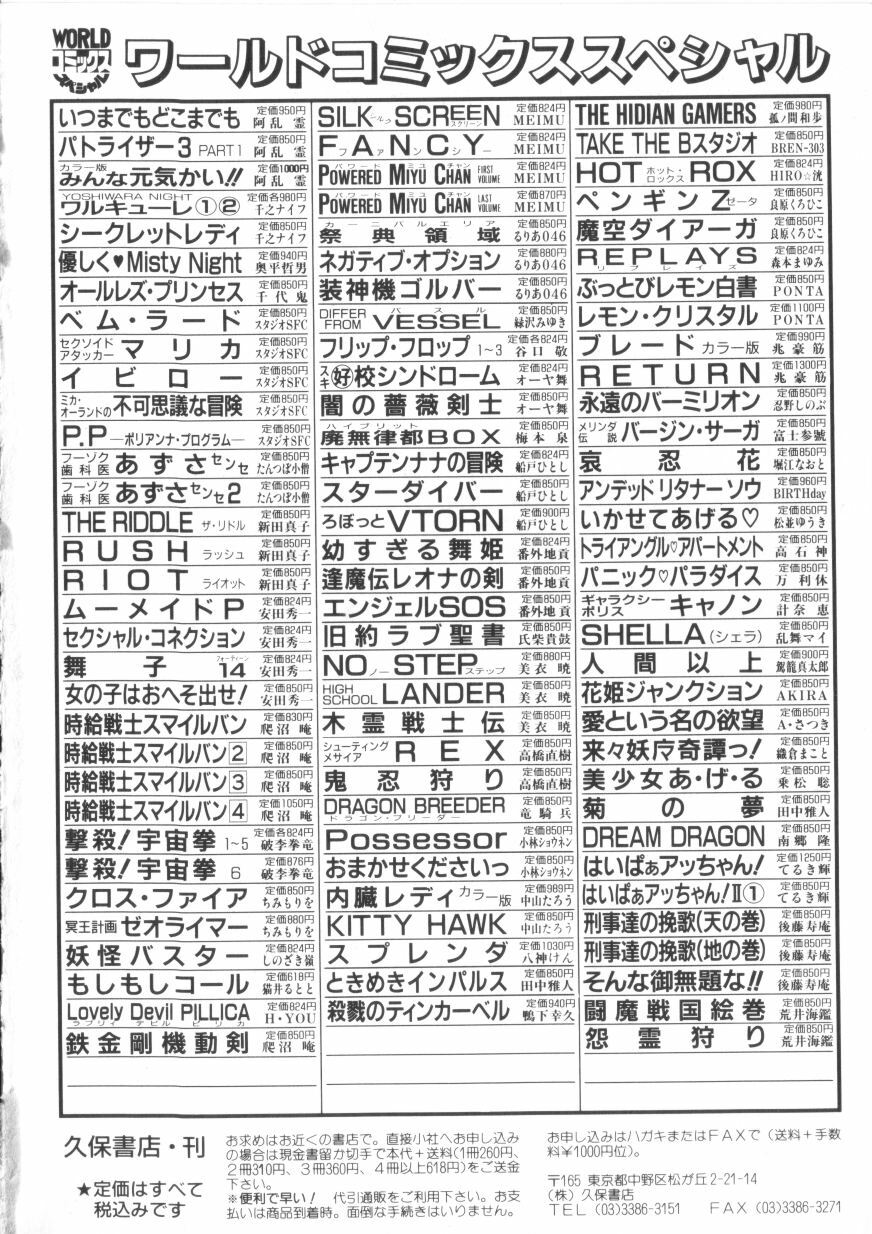 WORLD
コミックス
スペシャル
ワールドコミックススペシャル
いつまでもどこまでも 定価950円 阿乱 霊
パトライザー3 PART1 定価850円 阿乱 霊
カラー版 みんな元気かい!! 定価1000円 阿乱 霊
YOSHIWARA NIGHT ワルキューレ①② 定価各980円 千之ナイフ
シークレットレディ 定価850円 千之ナイフ
優しく♥Misty Night 定価940円 奥平哲男
オールレズ・プリンセス 定価850円 千代 鬼
ベム・ラード 定価850円 スタジオSFC
セクソイドアタッカー マリカ 定価850円 スタジオSFC
イビロー 定価850円 スタジオSFC
ミカ・オーランドの不可思議な冒険 定価850円 スタジオSFC
P.P ―ポリアンナ・プログラム― 定価850円 スタジオSFC
フーゾク歯科医 あずさセンセ 定価850円 たんつぼ小僧
フーゾク歯科医 あずさセンセ2 定価850円 たんつぼ小僧
THE RIDDLE ザ・リドル 定価850円 新田真子
RUSH ラッシュ 定価850円 新田真子
RIOT ライオット 定価850円 新田真子
ムーメイドP 定価824円 安田秀一
セクシャル・コネクション 定価824円 安田秀一
舞子14 フォーティーン 定価824円 安田秀一
女の子はおへそ出せ! 定価850円 安田秀一
時給戦士スマイルバン 定価830円 爬沼 庵
時給戦士スマイルバン2 定価850円 爬沼 庵
時給戦士スマイルバン3 定価850円 爬沼 庵
時給戦士スマイルバン4 定価1050円 爬沼 庵
撃殺!宇宙拳 1~5 定価各824円 破李拳竜
撃殺!宇宙拳 6 定価876円 破李拳竜
クロス・ファイア 定価850円 ちみもりを
冥王計画ゼオライマー 定価880円 ちみもりを
妖怪バスター 定価824円 しのざき嶺
もしもしコール 定価618円 猫井るとと
Lovely Devil PILLICA ラブリィ デビル ピリカ 定価824円 H・YOU
鉄金剛機動剣 定価850円 爬沼 庵
SILK シルク SCREEN スクリーン 定価824円 MEIMU
FANCY ファンシー 定価824円 MEIMU
POWERED MIYU CHAN パワード ミユ チャン FIRST VOLUME 定価824円 MEIMU
POWERED MIYU CHAN パワード ミユ チャン LAST VOLUME 定価870円 MEIMU
祭典領域 カーニバルエリア 定価850円 るりあ046
ネガティブ・オプション 定価880円 るりあ046
装神機ゴルバー 定価850円 るりあ046
DIFFER FROM VESSEL 定価850円 緑沢みゆき
フリップ・フロップ 1~3 定価各824円 谷口 敬
スキ好校シンドローム 定価824円 オーヤ舞
闇の薔薇剣士 定価850円 オーヤ舞
廃無律都BOX ハイブリット 定価850円 梅本 泉
キャプテンナナの冒険 定価850円 船戸ひとし
スターダイバー 定価850円 船戸ひとし
ろぼっとVTORN 定価900円 船戸ひとし
幼すぎる舞姫 定価824円 番外地貢
逢魔伝レオナの剣 定価850円 番外地貢
エンジェルSOS 定価850円 番外地貢
旧約ラブ聖書 定価850円 氏柴貴鼓
NO ノー STEP ステップ 定価880円 美衣 暁
HIGH SCHOOL LANDER 定価850円 美衣 暁
木霊戦士伝 定価850円 美衣 暁
シューティングメサイア REX 定価850円 高橋直樹
鬼忍狩り 定価850円 高橋直樹
DRAGON BREEDER ドラゴン・ブリーダー 定価850円 竜騎兵
Possessor 定価850円 小林ショウネン
おまかせくださいっ 定価850円 小林ショウネン
内臓レディ カラー版 定価989円 中山たろう
KITTY HAWK 定価850円 中山たろう
スプレンダ 定価1030円 八神けん
ときめきインパルス 定価850円 田中雅人
殺戮のティンカーベル 定価940円 鴨下幸久
THE HIDIAN GAMERS 定価980円 狐ノ間和歩
TAKE THE Bスタジオ 定価850円 BREN-303
HOT ホット・ロックス ROX 定価824円 HIRO☆洸
ペンギンZ ゼータ 定価850円 良原くろひこ
魔空ダイアーガ 定価850円 良原くろひこ
REPLAYS リプレイズ 定価824円 森本まゆみ
ぶっとびレモン白書 定価850円 PONTA
レモン・クリスタル 定価1100円 PONTA
ブレード カラー版 定価990円 兆豪筋
RETURN 定価1300円 兆豪筋
永遠のバーミリオン 定価850円 忍野しのぶ
メリンダ伝説 バージン・サーガ 定価850円 富士参號
哀忍花 定価850円 堀江なおと
アンデッドリタナー ソウ 定価960円 BIRTHday
いかせてあげる♡ 定価850円 松並ゆうき
トライアングル♡アパートメント 定価850円 高石神
パニック♡パラダイス 定価850円 万利休
ギャラクシーポリス キャノン 定価850円 計奈 恵
SHELLA(シェラ) 定価850円 乱舞マイ
人間以上 定価900円 駕籠真太郎
花姫ジャンクション 定価850円 AKIRA
愛という名の欲望 定価850円 A・さつき
来々妖庁奇譚っ! 定価850円 織倉まこと
美少女あ・げ・る 定価850円 乗松 聡
菊の夢 定価850円 田中雅人
DREAM DRAGON 定価850円 南郷 隆
はいぱぁアッちゃん! 定価1250円 てるき輝
はいぱぁアッちゃん!Ⅱ① 定価850円 てるき輝
刑事達の挽歌(天の巻) 定価850円 後藤寿庵
刑事達の挽歌(地の巻) 定価850円 後藤寿庵
そんな御無題な!! 定価850円 後藤寿庵
闘魔戦国絵巻 定価850円 荒井海鑑
怨霊狩り 定価850円 荒井海鑑
久保書店・刊
★定価はすべて
税込みです
お求めはお近くの書店で。直接小社へお申し込み
の場合は現金書留か切手で本代+送料(1冊260円、
2冊310円、3冊360円、4冊以上618円)をご送金
下さい。
※便利で早い! 代引通販をご利用下さい。お支
払いは商品到着時。面倒な手続きはいりません。
お申し込みはハガキまたはFAXで(送料+手数
料¥1000円位)。
〒165 東京都中野区松が丘2-21-14
(株)久保書店
TEL (03)3386-3151 FAX (03)3386-3271